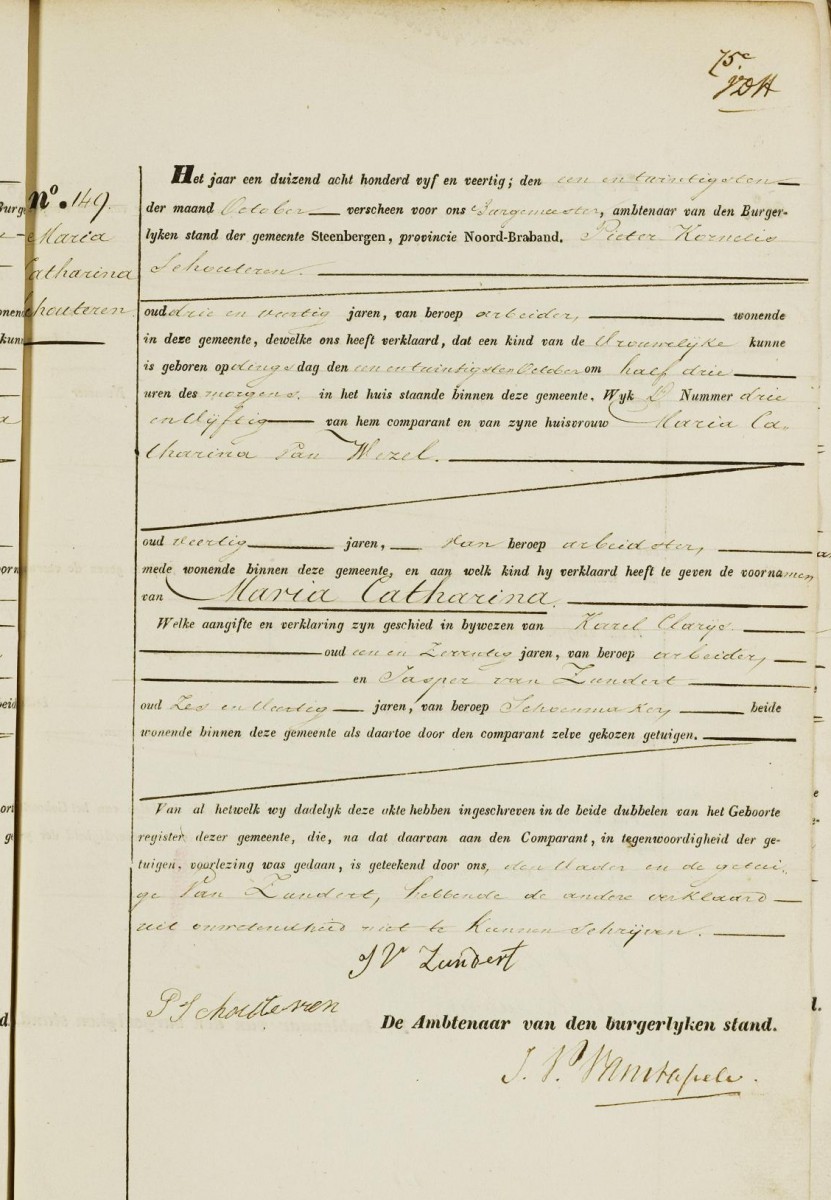 75e
No. 149.
Maria
Catharina
Schouteren.
Het jaar een duizend acht honderd vyf en veertig; den een en twintigsten
der maand October verscheen voor ons Burgemeester, ambtenaar van den Burger-
lyken stand der gemeente Steenbergen, provincie Noord-Braband. Pieter Kornelis
Schouteren.
oud drie en veertig jaren, van beroep arbeider, wonende
in deze gemeente, dewelke ons heeft verklaard, dat een kind van de Vrouwelijke kunne
is geboren op dings dag den een en twintigsten October om half drie
uren des morgens. in het huis staande binnen deze gemeente. Wyk Nummer drie
en Vijftig van hem comparant en van zyne huisvrouw Maria Ca-
tharina Van Wezel.
oud veertig jaren, van beroep arbeidster,
mede wonende binnen deze gemeente, en aan welk kind hy verklaard heeft te geven de voornamen
van Maria Catharina.
Welke aangifte en verklaring zyn geschied in bywezen van Karel Clarijs
oud een en Zeventig jaren, van beroep arbeider,
en Jasper van Zundert
oud Zes en Veertig jaren, van beroep Schoenmaker, beide
wonende binnen deze gemeente als daartoe door den comparant zelve gekozen getuigen.
Van al hetwelk wy dadelyk deze akte hebben ingeschreven in de beide dubbelen van het Geboorte
register dezer gemeente, die, na dat daarvan aan den Comparant, in tegenwoordigheid der ge-
tuigen, voorlezing was gedaan, is geteekend door ons, den Vader en de getui-
ge Van Zundert, hebbende de andere verklaard
uit onwetendheid niet te kunnen schrijven.
J V Zundert
P Schouteren
De Ambtenaar van den burgerlyken stand.